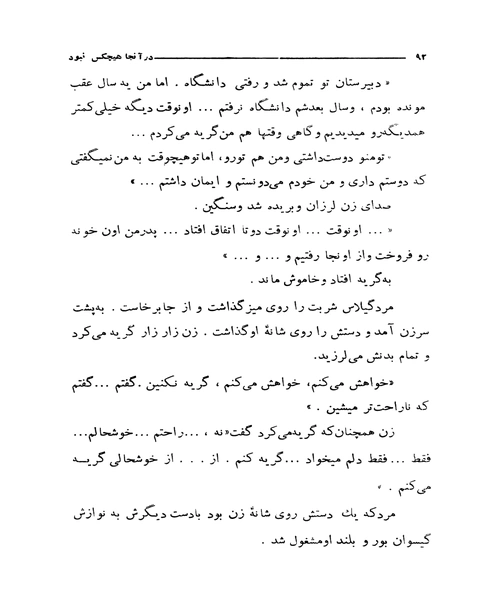 ۹۲ در آنجا هیچکس نبود
« دبیرستان تو تموم شد و رفتی دانشگاه . اما من یه سال عقب
مونده بودم ، وسال بعدشم دانشگاه نرفتم ... اونوقت دیگه خیلی کمتر
همدیگه‌رو میدیدیم وگاهی وقتها هم من‌گریه می‌کردم ...
«تومنو دوست‌داشتی ومن هم تورو، اماتوهیچوقت به من‌نمیگفتی
که دوستم داری و من خودم می‌دونستم و ایمان داشتم ... »
صدای زن لرزان وبریده شد وسنگین .
« ... اونوقت ... اونوقت دوتا اتفاق افتاد ... پدرمن اون خونه
رو فروخت واز اونجا رفتیم و ... و ... »
به‌گریه افتاد وخاموش ماند .
مردگیلاس شربت را روی میزگذاشت و از جابرخاست . به‌پشت
سرزن آمد و دستش را روی شانهٔ اوگذاشت . زن زار زار گریه می‌کرد
و تمام بدنش می‌لرزید.
«خواهش می‌کنم، خواهش می‌کنم ، گریه نکنین .گفتم ...گفتم
که ناراحت‌تر میشین . »
زن همچنان‌که گریه‌می‌کرد گفت«نه ، ...راحتم ...خوشحالم...
فقط ...فقط دلم میخواد ...گریه کنم . از . . . از خوشحالی گریـــه
می‌کنم . »
مردکه یك دستش روی شانهٔ زن بود بادست دیگرش به نوازش
گیسوان بور و بلند اومشغول شد .